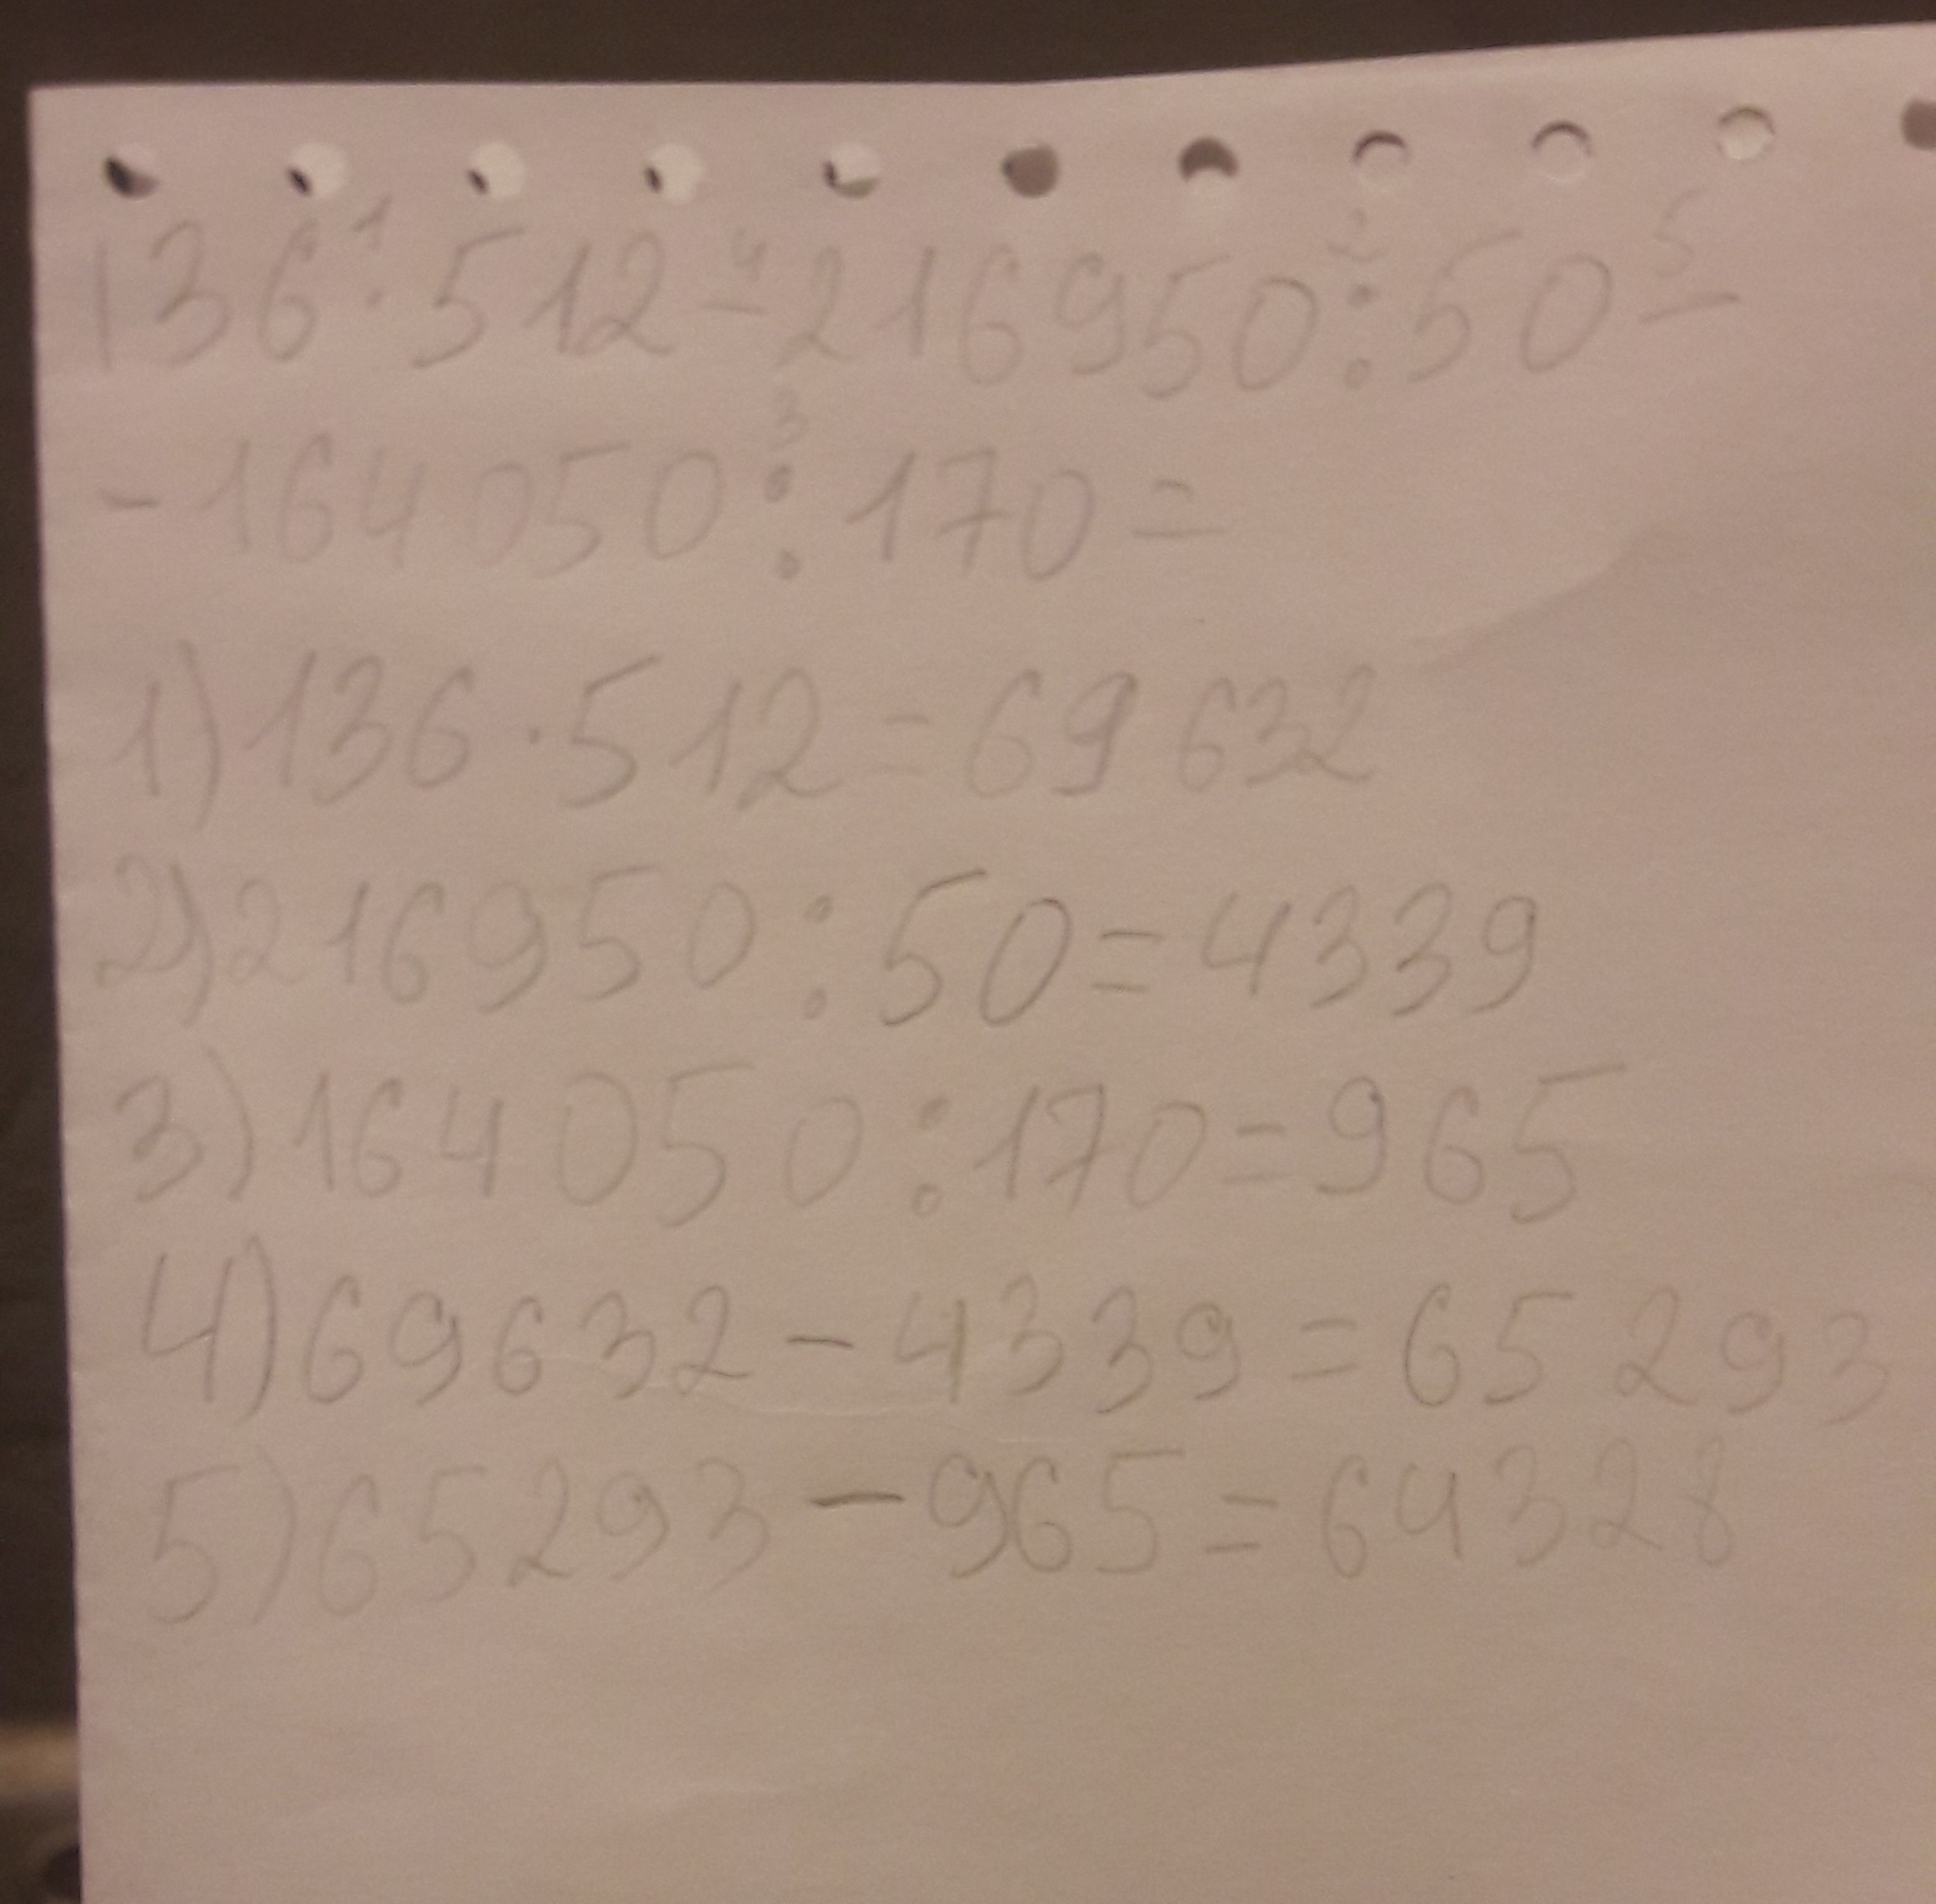 136 · 512 - 216950 : 50 -
- 164050 : 170 =
1) 136 · 512 = 69 632
2) 216950 : 50 = 4339
3) 164 050 : 170 = 965
4) 69632 - 4339 = 65 293
5) 65293 - 965 = 64328